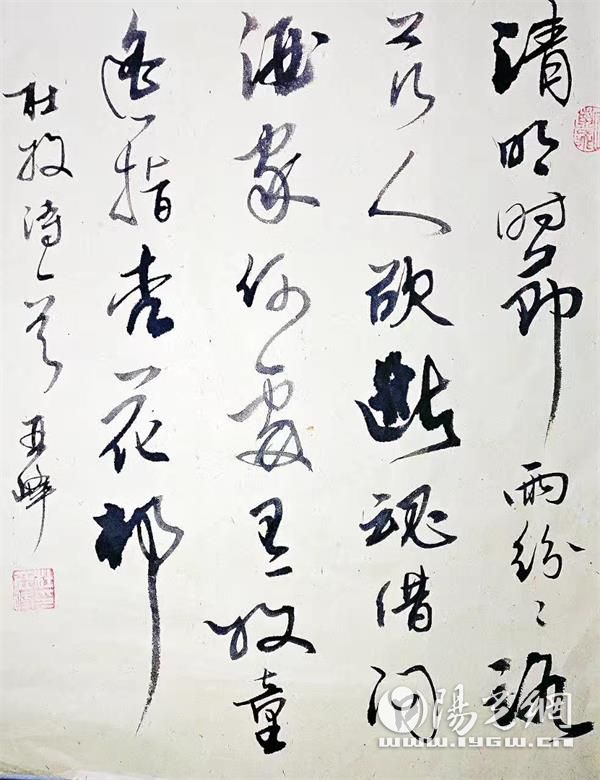 清明时节雨纷纷路
上行人欲断魂借问
酒家何处有牧童
遥指杏花村
杜牧诗一首 峰
陽光網
www.iygw.cn